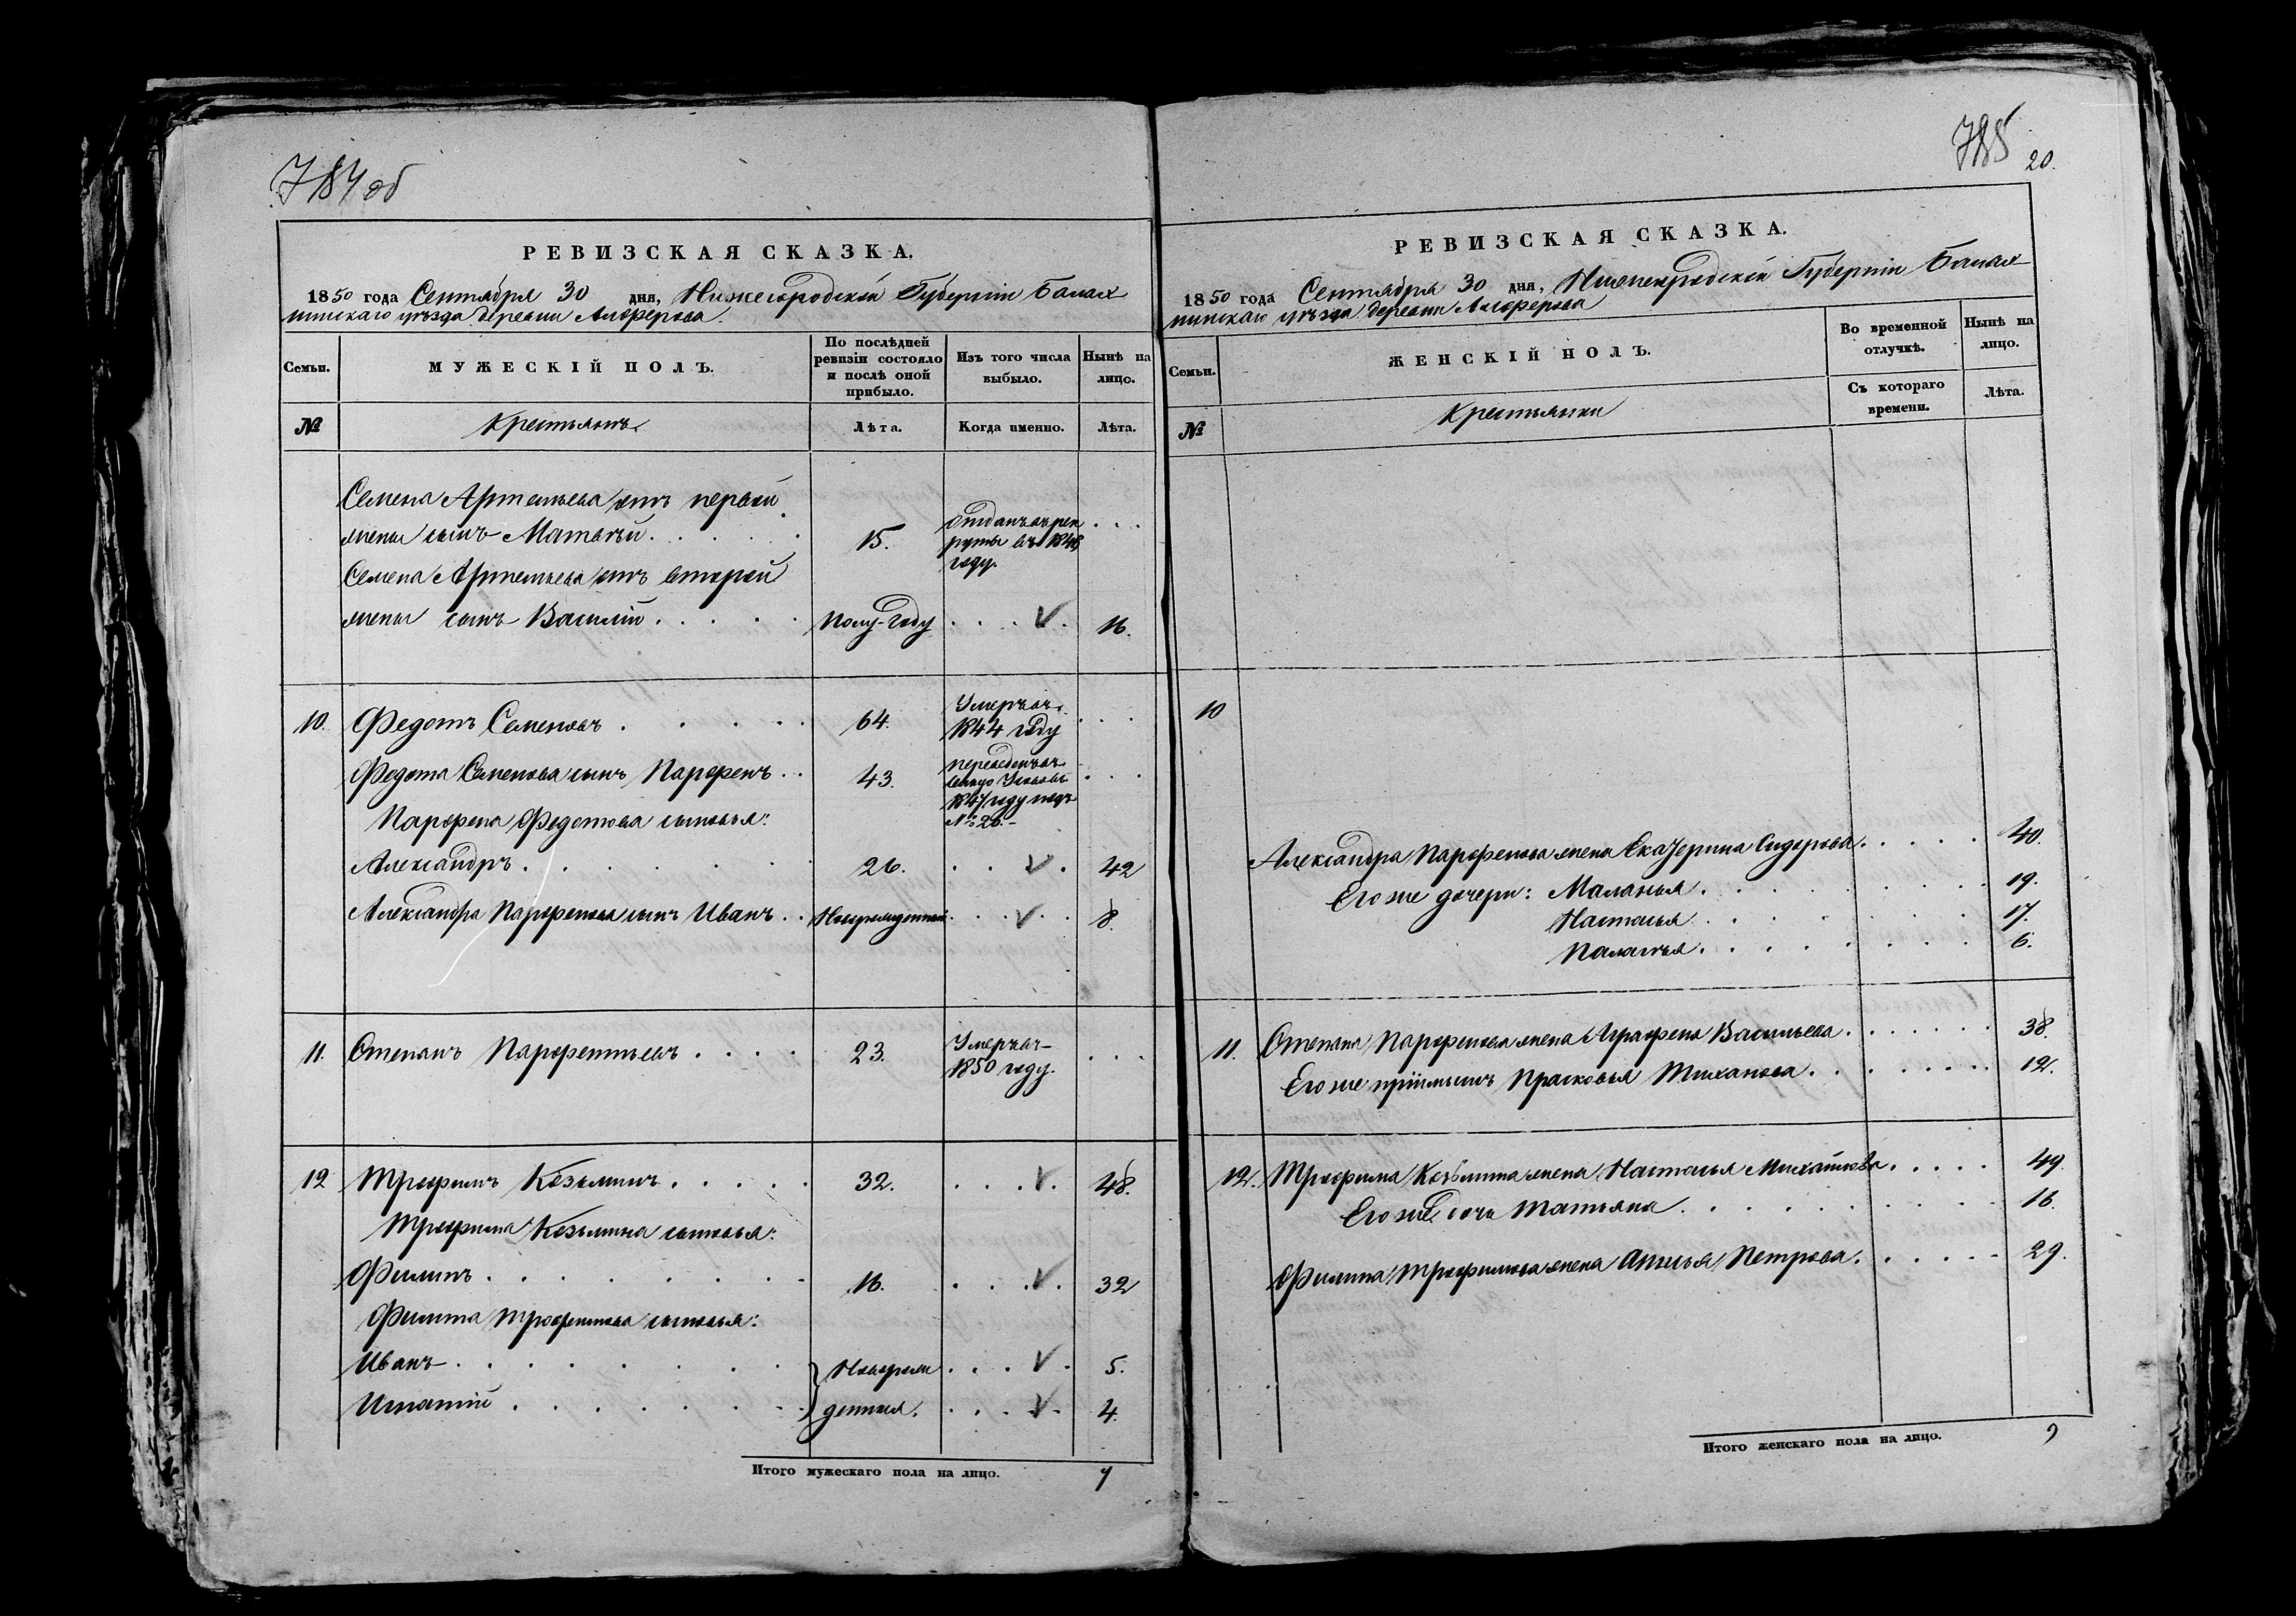 784 об
РЕВИЗСКАЯ СКАЗКА.
1850 года Сентября 30 дня, Нижегородской Губернiи Балах
нинскаго уѣзда деревни Алферова.
Семьи.
МУЖЕСКІЙ ПОЛЪ.
По послѣдней ревизіи состояло и послѣ оной прибыло.
Изъ того числа выбыло.
Нынѣ на лицо.
№
Крестьянъ
Лѣта.
Когда именно.
Лѣта.
Семена Артемьева отъ первой
жены сынъ Матвѣй. 15. отданъ въ рек
руты въ 184
году.
Семена Артемьева отъ второй
жены сынъ Василій. полу-году V 16.
10. Федотъ Семеновъ 64. Умеръ въ
1844 году
Федота Семенова сынъ Парфенъ 43. переведенъ въ
1847 году подъ
№ 26.
Парфена Федотова сыновья:
Александръ. 26. V 42
Александра Парфенова сынъ Иванъ Новорожденный V 8.
11. Степанъ Парфентьевъ 23. Умеръ въ
1850 году.
12 Трофимъ Козьминъ 32. V 48.
Трофима Козьмина сыновья:
Филипъ 16. V 32
Филипа Трофимова сыновья:
Иванъ Новорож V 5.
Игнатій денныя. V 4.
Итого мужескаго пола на лицо. 7
785
20.
РЕВИЗСКАЯ СКАЗКА.
1850 года Сентября 30 дня, Нижегородской Губернiи Балах
нинскаго уѣзда деревни Алферова
Семьи.
ЖЕНСКІЙ ПОЛЪ.
Во временной отлучкѣ.
Нынѣ на лицо.
№
Крестьянки
Съ котораго времени.
Лѣта.
10
Александра Парфенова жена Екатерина Сидорова. 40.
Его же дочери: Маланья. 19.
Настасья 17.
Палагея. 6.
11. Степана Парфенова жена Аграфена Васильева. 38.
Его же пріимышъ Прасковья Тиханова. 12.
12. Трофима Козьмина жена Настасья Михайлова. 49.
Его же дочь Татьяна. 16.
Филипа Трофимова жена Анисья Петрова. 29.
Итого женскаго пола на лицо. 9